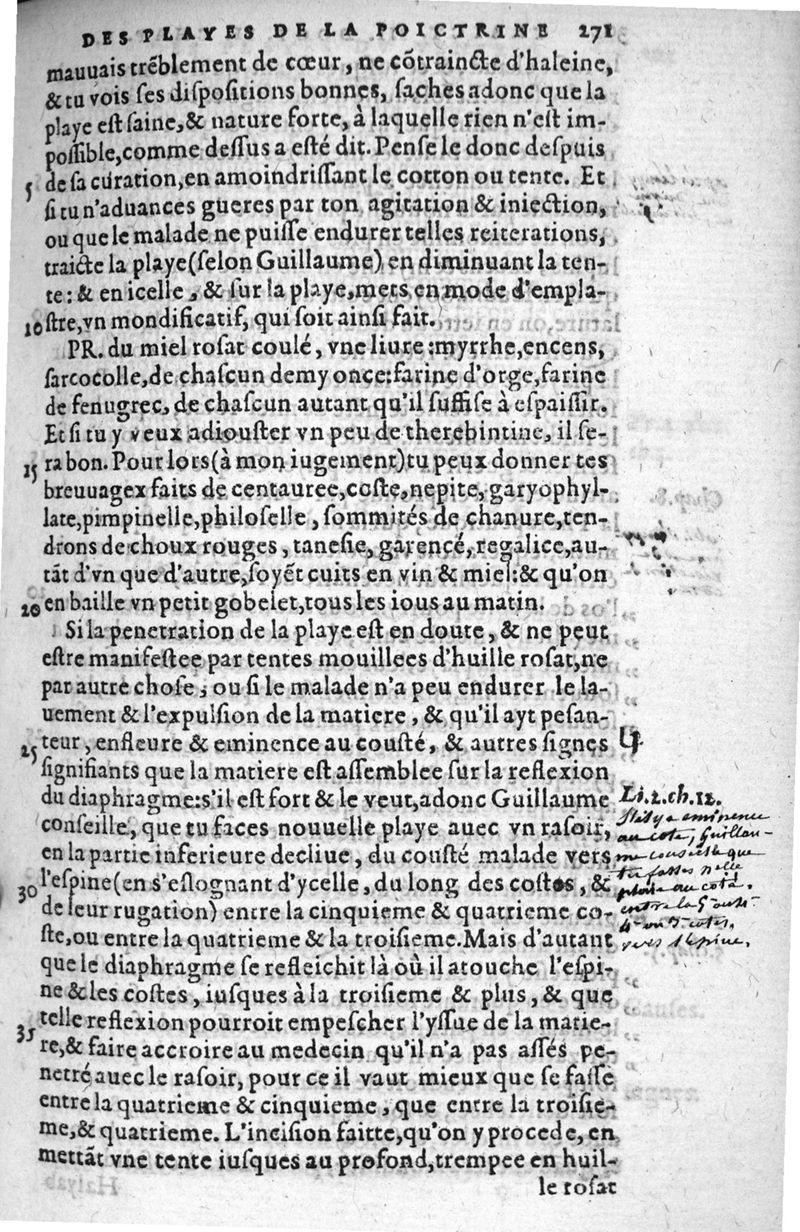 DES PLAYES DE LA POICTRINE 271
mauuais trẽblement de cœur, ne cõtraincte d'haleine,
& tu vois ses dispositions bonnes, saches adonc que la
playe est saine, & nature forte, à laquelle rien n'est im-
possible, comme dessus a esté dit. Pense le donc despuis
5 de sa curation, en amoindrissant le cotton ou tente. Et
si tu n'aduances gueres par ton agitation & iniection,
ou que le malade ne puisse endurer telles reiterations,
traicte la playe (selon Guillaume) en diminuant la ten-
te: & en icelle, & sur la playe, mets en mode d'empla-
10 stre, vn mondificatif, qui soit ainsi fait.
PR. du miel rosat coulé, vne liure: myrrhe, encens,
sarcocolle, de chascun demy once: farine d'orge, farine
de fenugrec, de chascun autant qu'il suffise à espaissir.
Et si tu y veux adiouster vn peu de therebintine, il se-
15 ra bon. Pour lors (à mon iugement) tu peux donner tes
breuuagex faits de centauree, coste, nepite, garyophyl-
late, pimpinelle, philoselle, sommités de chanure, ten-
drons de choux rouges, tanesie, garence, regalice, au-
tãt d'vn que d'autre, soyẽt cuits en vin & miel: & qu'on
20 en baille vn petit gobelet, tous les ious au matin.
Si la penetration de la playe est en doute, & ne peut
estre manifestee par tentes mouillees d'huille rosat, ne
par autre chose; ou si le malade n'a peu endurer le la-
uement & l'expulsion de la matiere, & qu'il ayt pesan-
25 teur, enfleure & eminence au cousté, & autres signes
signifiants que la matiere est assemblee sur la reflexion
du diaphragme: s'il est fort & le veut, adonc Guillaume
conseille, que tu faces nouuelle playe auec vn rasoir,
en la partie inferieure decliue, du cousté malade vers
30 l'espine (en s'eslognant d'ycelle, du long des costes, &
de leur rugation) entre la cinquieme & quatrieme co-
ste, ou entre la quatrieme & la troisieme. Mais d'autant
que le diaphragme se refleichit là où il atouche l'espi-
ne & les costes, iusques à la troisieme & plus, & que
35 telle reflexion pourroit empescher l'yssue de la matie-
re, & faire accroire au medecin qu'il n'a pas assés pe-
netré auec le rasoir, pour ce il vaut mieux que se fasse
entre la quatrieme & cinquieme, que entre la troisie-
me, & quatrieme. L'incision faitte, qu'on y procede, en
mettãt vne tente iusques au profond, trempee en huil-
le rosat
Li. 2. ch. 12.
s'il y a eminence
au coté, Guillau-
me conseille que
tu fasses
plaie au coté.
entre la
costes,
vers l'epine.